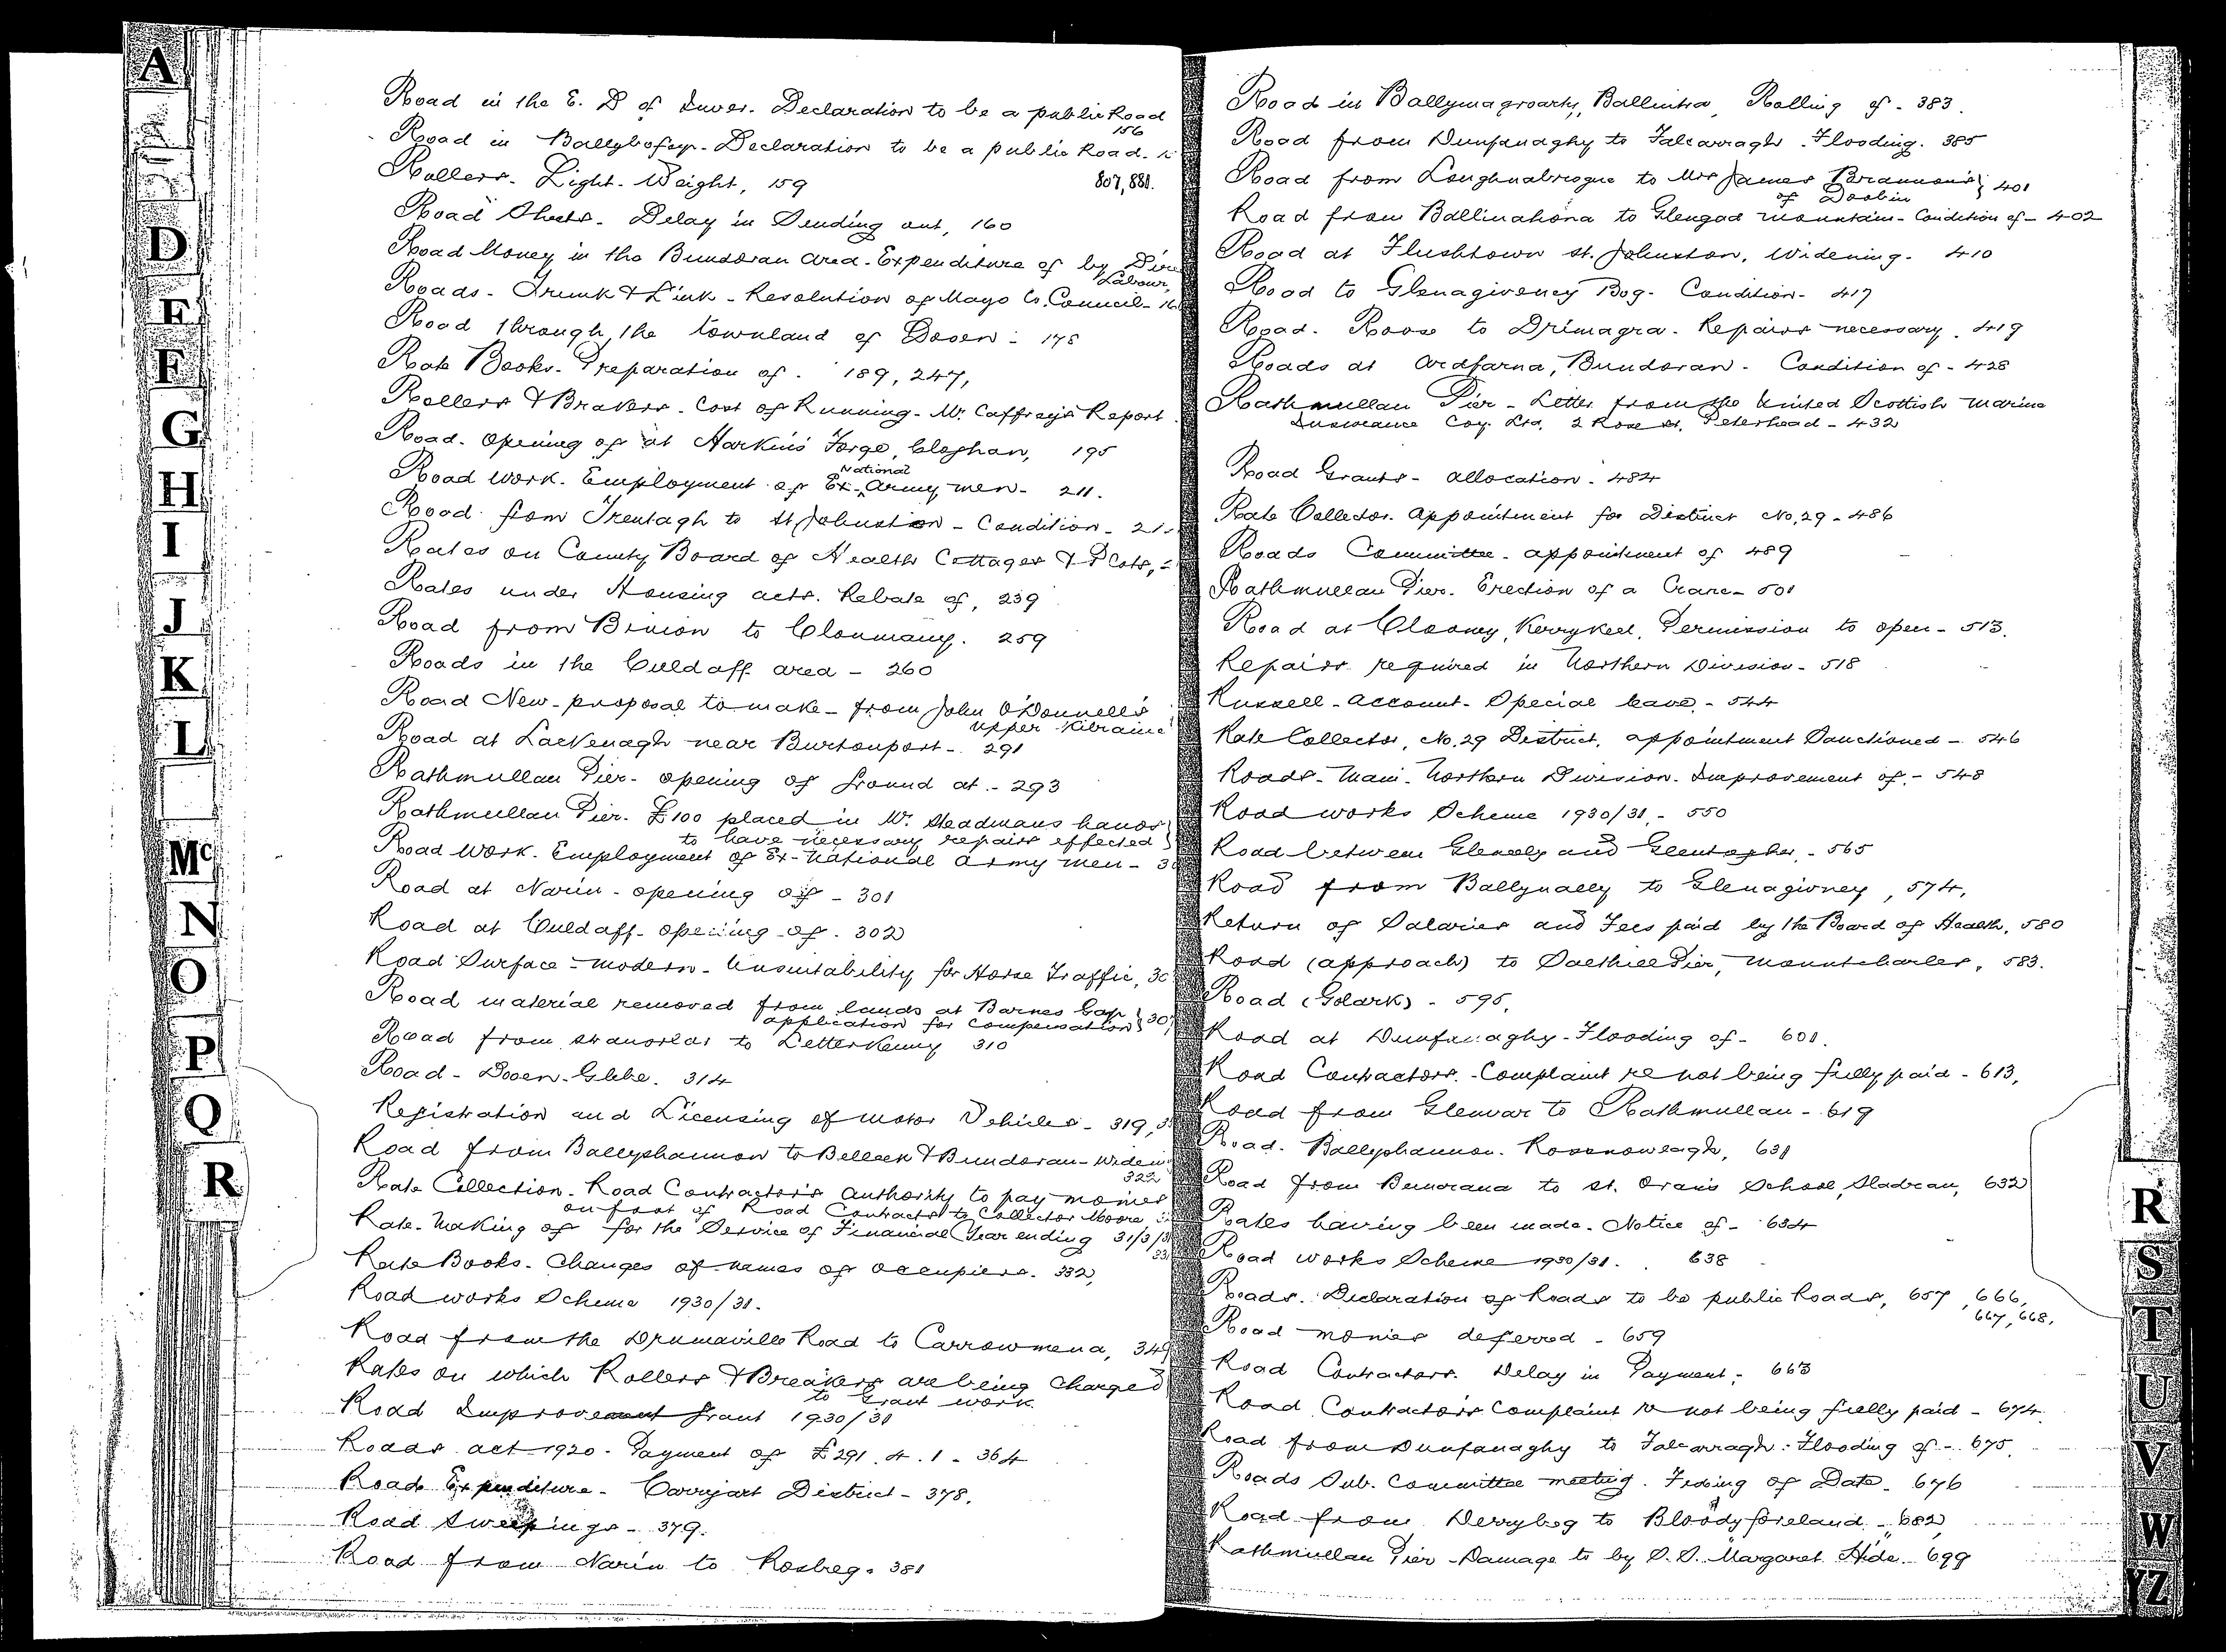 A
D
E
F
G
H
I
J
K
L
Mc
N
O
P
Q
R
Road in the E. D of Inver. Declaration to be a public Road
156
Road in Ballybofey. Declaration to be a public Road.
807, 881.
Rollers. Light. Weight, 159
Road Sheets. Delay in Sending out, 160
Road Money in the Bundoran area. Expenditure of by Direct
Labour,
Roads. Trunk & Link. Resolution of Mayo Co. Council.
Road through the townland of Dooen - 178
Rate Books. Preparation of. 189, 247,
Rollers & Brakers. Cost of Running. Mr. Caffrey's Report
Road. opening of at Harkin's Forge, Cloghan, 195
National
Road work. Employment of Ex-Army men - 211.
Road from Trentagh to St Johnston - Condition -
Rates on County Board of Health Cottages & Plots,
Rates under Housing acts. Rebate of, 239
Road from Binion to Clonmany. 259
Roads in the Culdaff area - 260
Road New - proposal to make - from John O'Donnell's
upper
Road at Lackenagh near Burtonport - 291
Rathmullan Pier - opening of ground at - 293
Rathmullan Pier. £100 placed in Mr. Steadmans hands
to have necessary repairs effected
Road Work. Employment of Ex-National army men -
Road at Narin - opening of - 301
Road at Culdaff - opening of. 302
Road Surface - modern - Unsuitability for Horse Traffic,
Road material removed from lands at Barnes Gap
application for compensation
Road from Stranorlar to Letterkenny 310
Road - Dooen Glebe. 314
Registration and Licensing of Motor Vehicles - 319,
Road from Ballyshannon to Belleek & Bundoran -
322
Rate Collection. Road Contractor's authority to pay monies
on foot of Road Contracts to Collector Moore
Rate. Making of for the Service of Financial Year ending
Rate Books. Changes of names of occupiers. 332,
Road works Scheme 1930/31.
Road from the Drumaville Road to Carrowmena, 349
Rates on which Rollers & Breakers are being charged
to Grant work.
Road Improvement Grant 1930/31
Roads act 1920. Payment of £291. 4. 1 - 364
Road Expenditure. Carrigart District - 378.
Road Sweepings - 379.
Road from Narin to Rosbeg. 381
Road in Ballymagroarty, Ballintra, Rolling of - 383.
Road from Dunfanaghy to Falcarragh. Flooding. 385
Road from Loughnabrogue to Mrs James Brannon's 401
of Doobin
Road from Ballinahona to Glengad mountain - Condition of - 402
Road at Flushtown St. Johnston, Widening. 410
Road to Glenagiveney Bog. Condition - 417
Road. Roose to Drimagra. Repairs necessary. 419
Roads at Ardfarna, Bundoran. Condition of - 428
Rathmullan Pier - Letter from the United Scottish Marine
Insurance Coy. Ltd. 2 Rose St. Peterhead - 432
Road Grants - allocation. 484
Rate Collector. Appointment for District No. 29 - 486
Roads Committee - appointment of 489
Rathmullan Pier. Erection of a Crane - 501
Road at Clooney, Kerrykeel, Permission to open - 513.
Repairs required in Northern Division - 518
Russell - Account. Special leave - 544
Rate Collector, No. 29 District, appointment Sanctioned - 546
Roads - Main - Northern Division. Improvement of - 548
Road works Scheme 1930/31 - 550
Road between Gleneely and - 565
Road from Ballynally to Glenagivney, 574,
Return of Salaries and Fees paid by the Board of Health, 580
Road (approach) to Salthill Pier, Mountcharles, 583.
Road (Golark) - 595,
Road at Dunfanaghy - Flooding of - 601.
Road Contractors. Complaint re not being fully paid - 613,
Road from Glenvar to Rathmullan - 619
Road. Ballyshannon. Rossnowlagh, 631
Road from Buncrana to St. Oran's School, Sladran, 632
Rates having been made. Notice of - 634
Road works Scheme 1930/31. 638
Roads. Declaration of Roads to be public Roads, 657, 666,
667, 668,
Road monies deferred - 659
Road Contractors. Delay in Payment - 663
Road Contractor's Complaint re not being fully paid - 674
Road from Dunfanaghy to Falcarragh. Flooding of - 675
Roads Sub. Committee meeting. Fixing of Date. 676
Road from Derrybeg to Bloody foreland - 682
Rathmullan Pier - Damage to by S. S. "Margaret Hide" 699
R
S
T
U
V
W
YZ